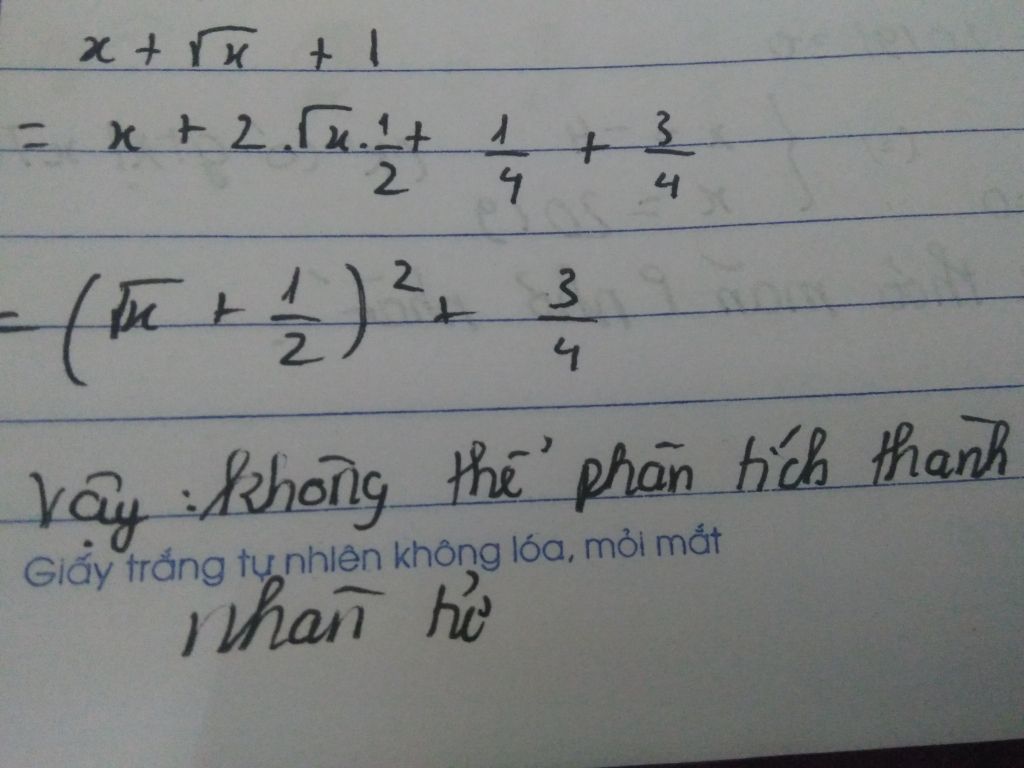 x + √x + 1
= x + 2.√x.1/2 + 1/4 + 3/4
= (√x + 1/2)² + 3/4
Vậy : không thể phân tích thành
Giấy trắng tự nhiên không lóa, mỏi mắt
nhân tử